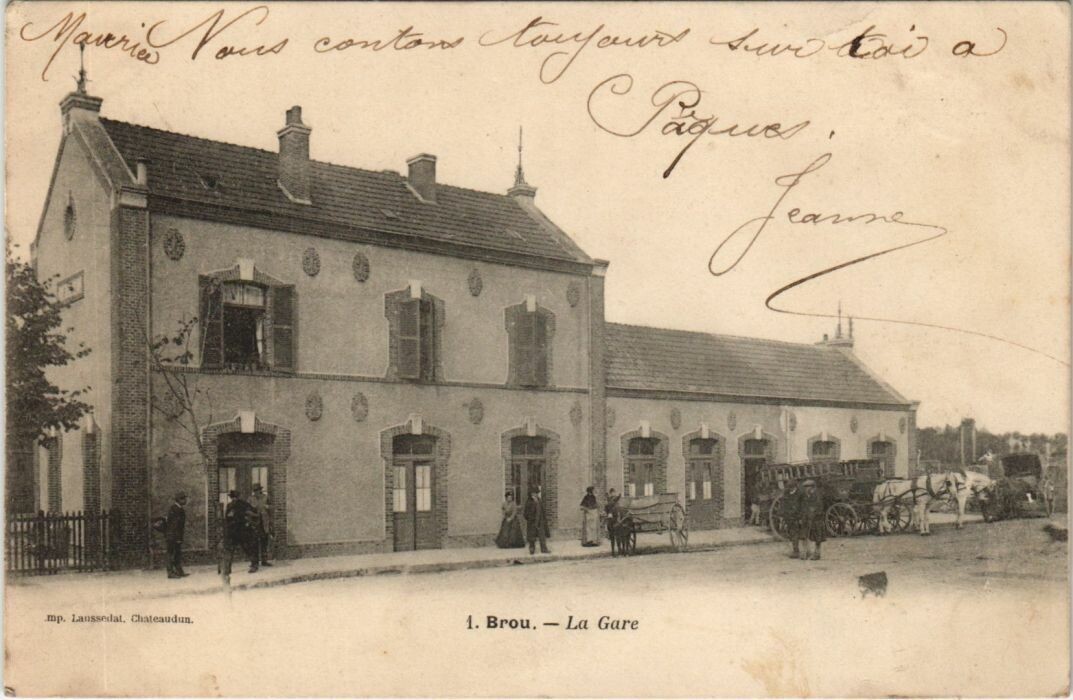 Nous contons toujours sur toi a
Pâques.
Jeanne
mp. Laussedat. Chateaudun.
1. Brou. — La Gare